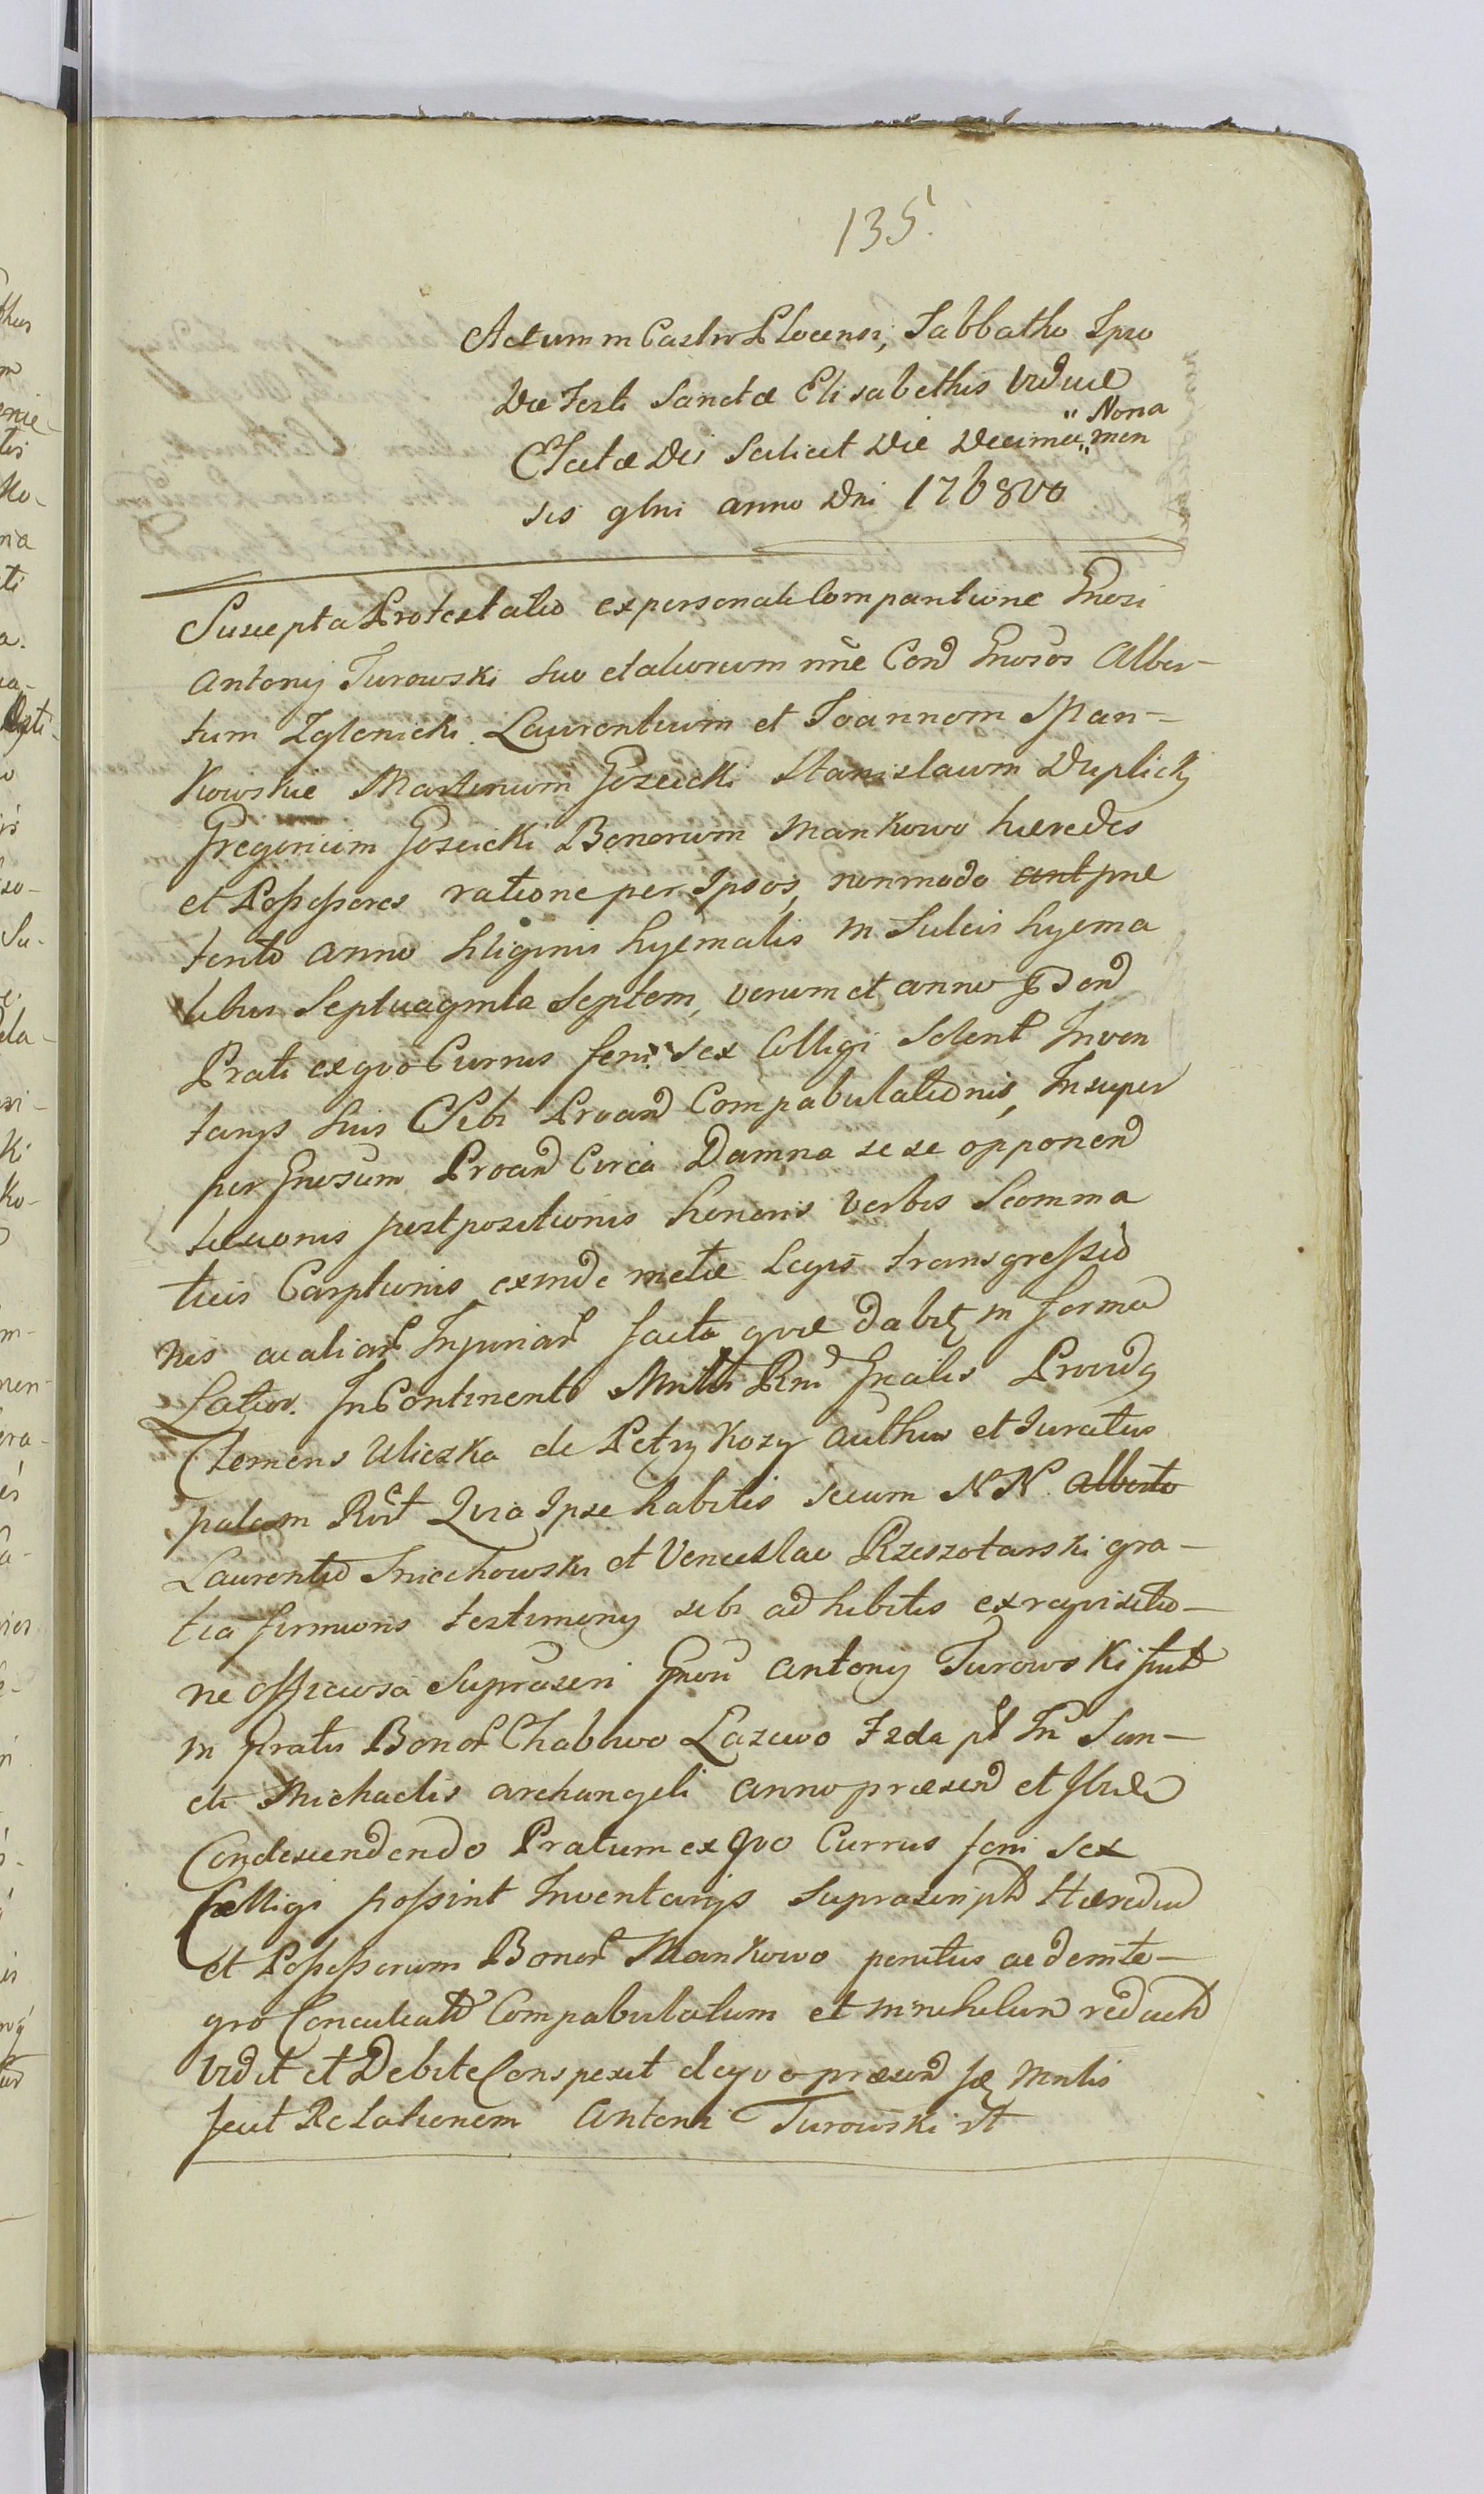 135.
Actum in Castro Plocensi, Sabbatho Ipso
Die Festi Sanctæ Elisabethis Viduæ
"Nona
Electæ Dei Scilicet Die Decima" men
sis 9bris anno Dni 1768vo
Suscepta Protestatio ex personali Comparitione Gnosi
Antonij Turowski suo et aliorum nne Cond Gnosos Alber-
tum Zglenicki Laurentium et Joannem Span-
kowskie Martinum Gozcicki Stanislaum Duplicis
Gregorium Goscicki Bonorum Mankowo hæredes
et Possessores ratione per Ipsos, nonmodo ant præ
terito anno Siliginis hyemalis in Sulcis hyema
libus Septuaginta Septem, verum et anno
Prati ex quo Currus feni sex Colligi Solent Inven
tarijs Suis Sibi Proand Compabulationis, Insuper
per Gnosum Proand Circa Damna sese opponend
postpositionis honoris verbis Scomma
ticis Carptionis exinde metæ Legis transgressio
nis ac aliar Injuriar facta quæ dabitz in forma
Latior. In Continenti Mnltis Rni Gnalis Providq
Clemens Uliczka de Petrykozy authen et Juratus
palam Rcit Quia Ipse habitis secum N N. Alberto
Laurentio Sniechowski et Venceslao Rzeszotarski gra-
tia firmioris testimony sibi adhibitis ex requisitio-
ne officiosa Suprascri Gnosi Antony Turowski fuit
in pratis Bonor Chabowo Lazewo Fzda pt Fn San-
cti Michaelis archangeli anno præsend et
Condescendendo Pratum ex Quo Currus feni sex
Colligi possint Inventarijs Suprascriptd Hæredum
et Possessorum Bonor Mankowo penitus ac deinte-
gro Conculcatd Compabulatum et in nihilum redactd
Vidit et Debite Conspexit de quo præsend
fecit Relationem Antoni Turowski